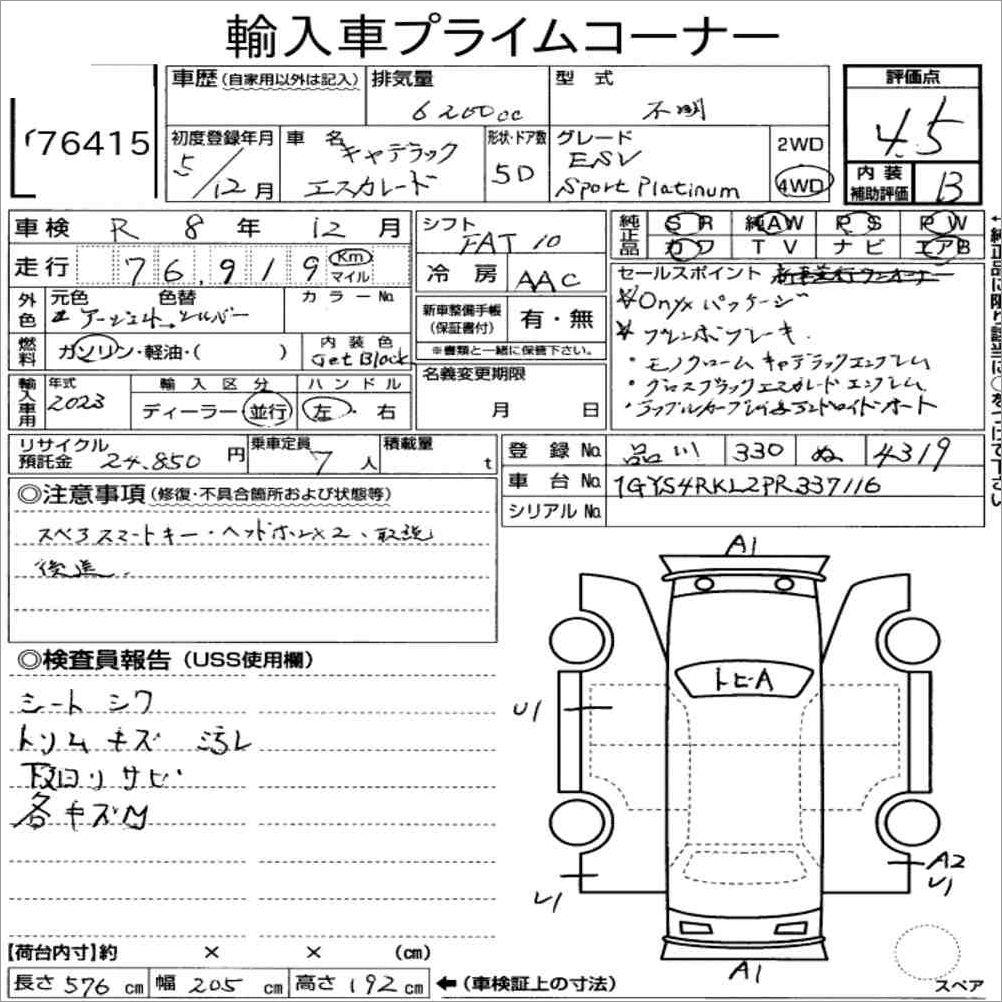 輸入車プライムコーナー
76415
車歴(自家用以外は記入) 排気量 6200cc 型式 不明
評価点 4.5
初度登録年月 5/12月 車名 キャデラック エスカレード
形状・ドア数 5D
グレード ESV Sport Platinum
2WD
4WD
内装補助評価 B
車検 R 8年 12月
シフト FAT 10
純正品 SR 純AW PS PW
カワ TV ナビ エアB
走行 76,919 Km マイル
冷房 AAC
セールスポイント
Onyxパッケージ
ブレンボブレーキ.
・モノクロームキャデラックエンブレム
・グロスブラックエスカレードエンブレム
・アップルカープレイ&アンドロイドオート
外色 元色 色替 カラーNo
アージェントシルバー
新車整備手帳(保証書付) 有・無
※書類と一緒に保管下さい。
燃料 ガソリン・軽油・( )
内装色 Get Black
名義変更期限 月 日
輸入車用 年式 2023
輸入区分 ディーラー・並行
ハンドル 左・右
リサイクル預託金 24.850円
乗車定員 7人
積載量 t
登録No. 品川 330 ぬ 4319
車台No. 1GYS4RKL2PR337116
シリアルNo.
◎注意事項(修復・不具合箇所および状態等)
スペアスマートキー・ヘッドホン×2、取説
後送.
◎検査員報告(USS使用欄)
シート シワ
トリム キズ 汚レ
下回リ サビ
各キズ凹
A1
トビ-A
U1
U1
A2
U1
A1
スペア
【荷台内寸】約 × × (cm)
長さ 576cm 幅 205cm 高さ 192cm ←(車検証上の寸法)
←純正品に限り該当に○をつけて下さい